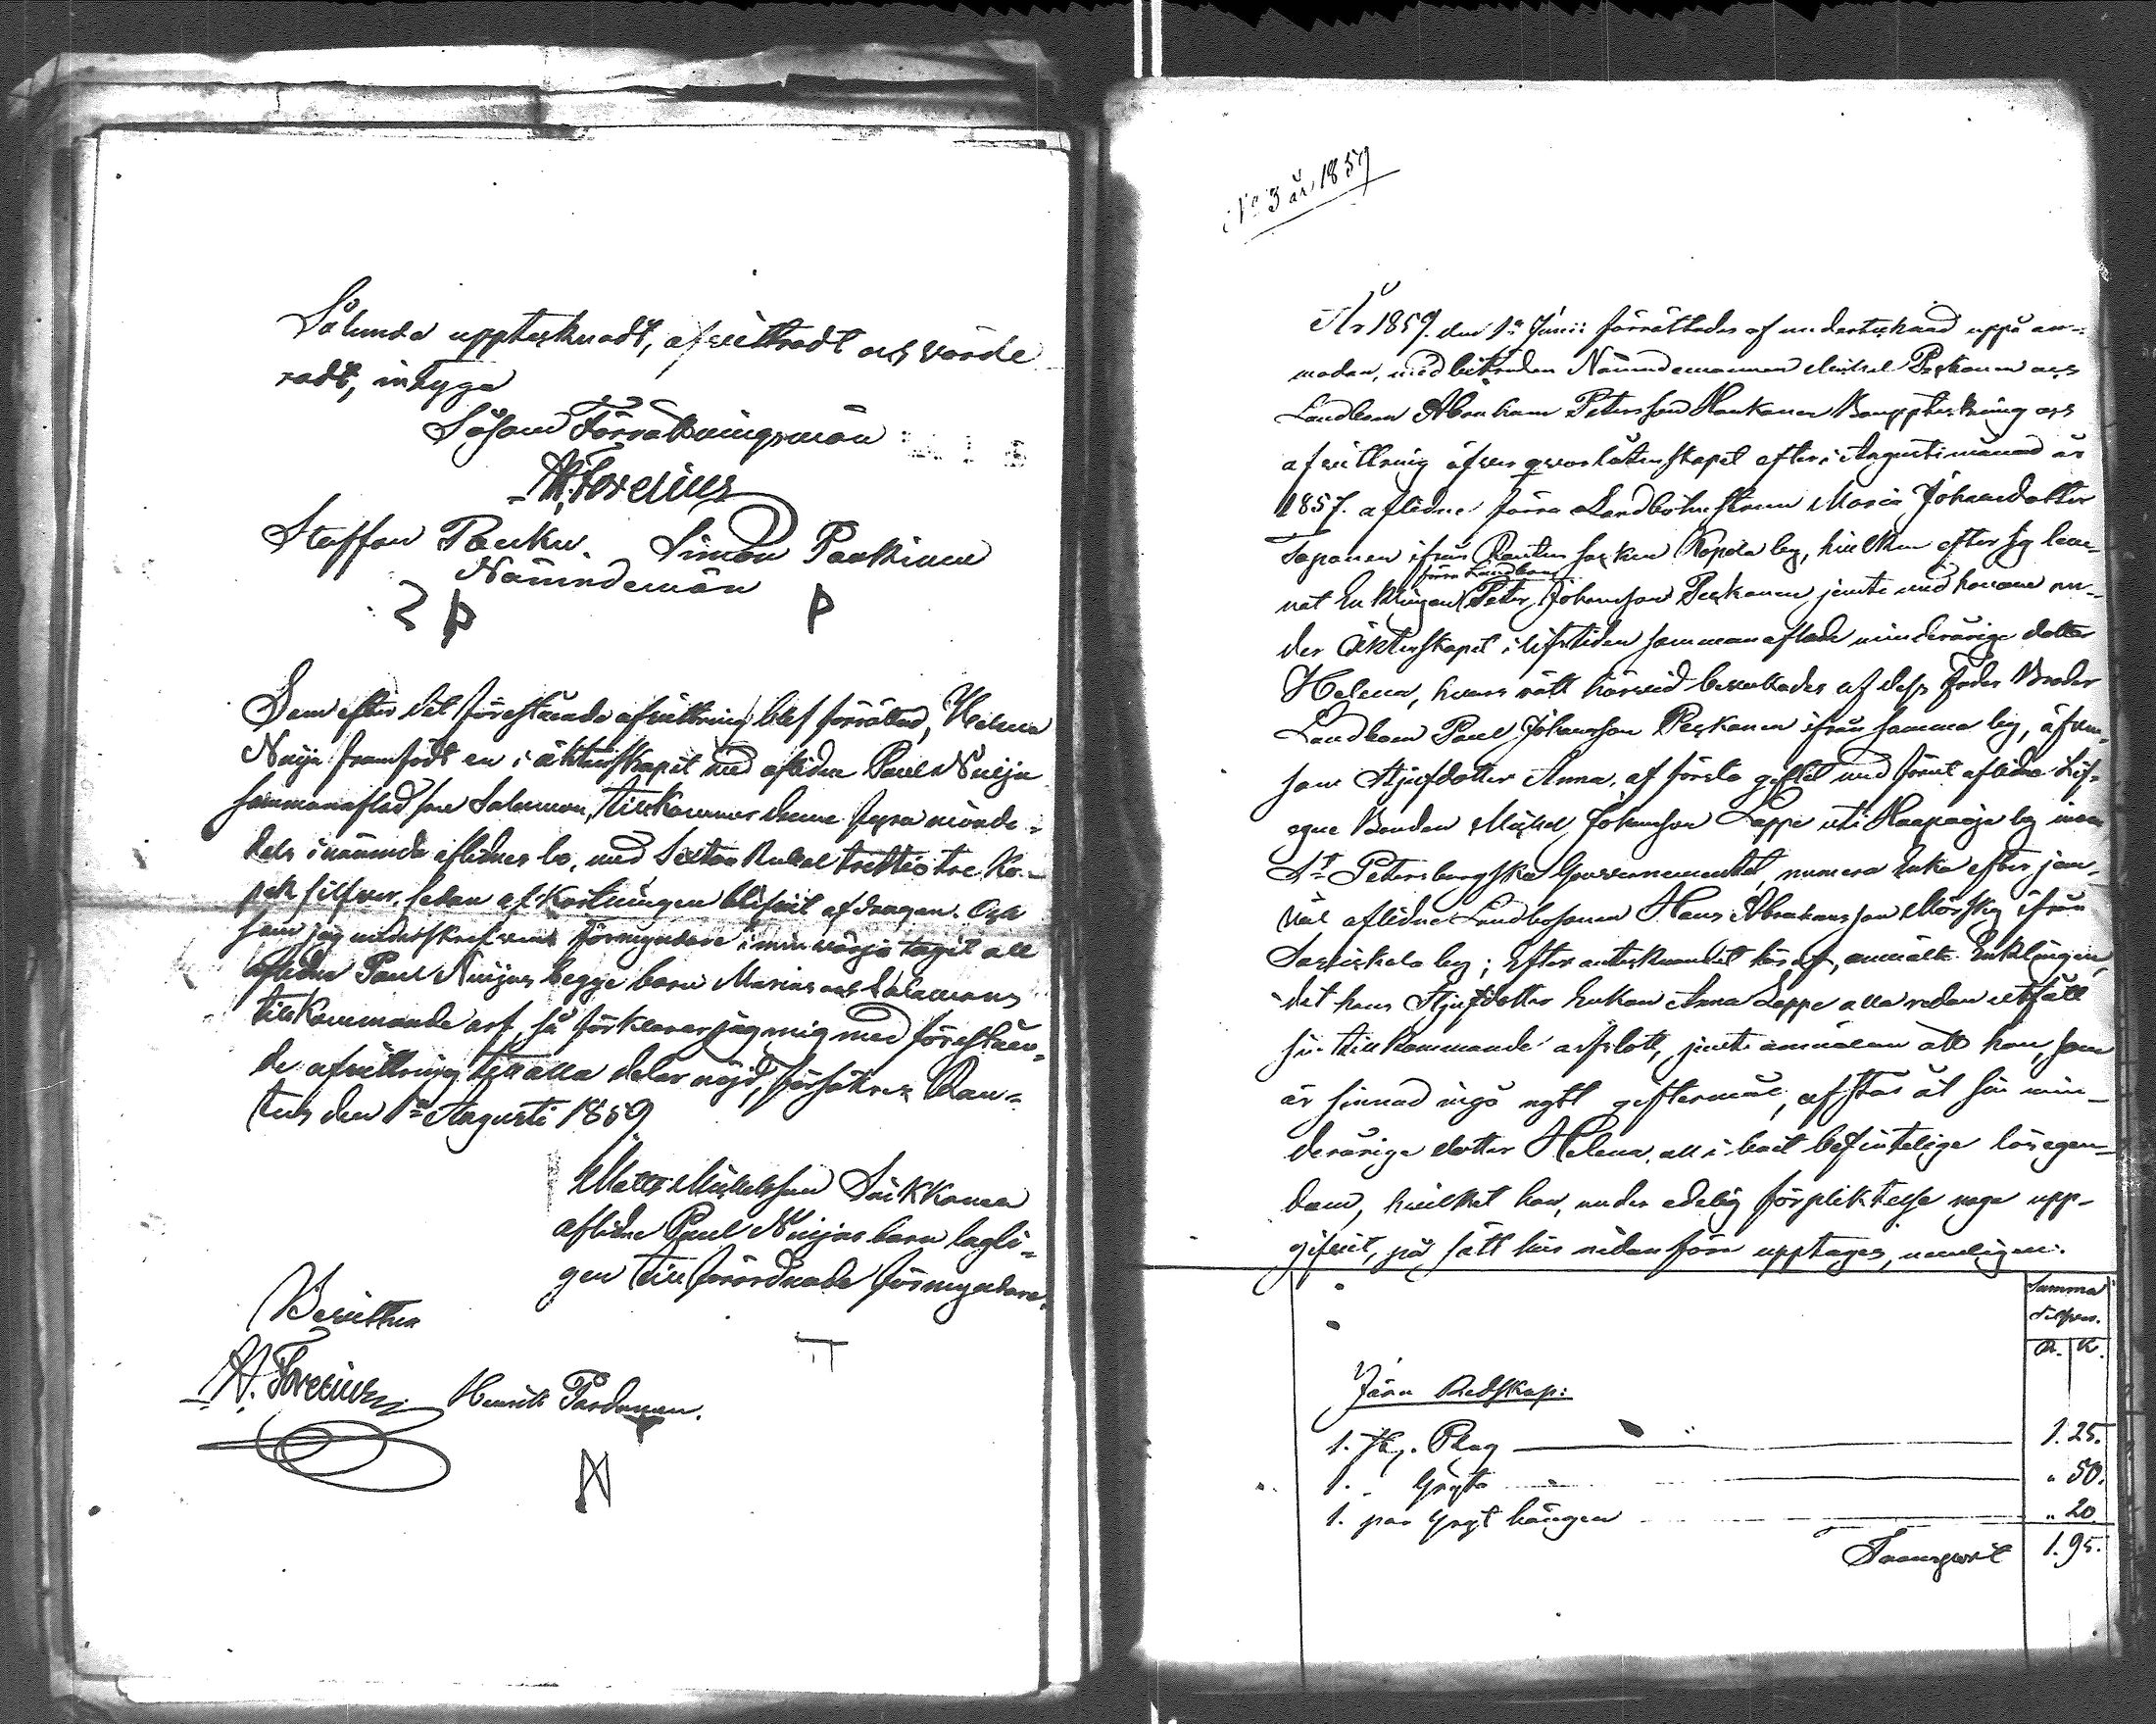 Sålunda uppteknadt, afvittradt och värde
radt, intyga
Såsom Förrättningsmän
A. Forelius
Staffan Pauku. Simon Paakinen
Nämndemän
Som efter det förestående afvittring blef förrättad, Helena
Nuija framfödt en i äktenskapet med aflidne Paul Nuija
sammanaflad son Salomon, tillkommer denne fyra niönde-
dels i nämnde aflidnes bo, med Sexton Rubel trettiotre Ko-
pek silfver, sedan afkortningen blifvit afdragen. Och
som jag underskrefvene Förmyndare i min värjo tagit all
aflidne Paul Nuijas begge barn Marias och Salomons
tillkommande arf, så förklarar jag mig med föreståen-
de afvittring till alla delar nöjd, försäkras Rau-
tus den 1a Augusti 1859
Matts Mickelsson Sikkanen
aflidne Paul Nuijas barn lagli-
gen till förordnade förmyndare.
Bevittna
A. Forelius Henrik Pardanen.
No 3 år 1859
År 1859. den 1a Junii förrättades af undertecknad uppå an-
modan, med biträden Nämndemannen Michel Peskonen och
Landbon Abraham Petersson Haukanen Bouppteckning och
afvittring öfver qvarlåtenskapet efter i Augusti månad år
1857. aflidne förra Landbohustrun Maria Johansdotter
Taponen ifrån Rautus socken Kopola by, hvilken efter sig lem-
förra Landbon
nat Enklingen Peter Johansson Peskonen jemte med honom un-
der äktenskapet i lifstiden sammanaflade minderårige dotter
Helena, hvars rätt härvid bevakades af dess Fader Broder
Landbon Paul Johansson Peskonen ifrån samma by, äfven-
som Stjufdotter Anna, af första giftet med förut aflidne Lif-
egne Bonden Michel Johansson Leppe uti Haapaoja by inom
St Petersburgska Gouvernementet, numera Enka efter jem-
väl aflidne Landbosonen Hans Abrahamsson Mörsky ifrån
by; Efter antecknandet häraf, anmälte Enklingen,
det hans Stjufdotter Enkan Anna Leppe alla redan utfått
sin tillkommande arfslott, jemte anmälan att han, som
är sinnad ingå nytt giftermål, afstår åt sin min-
derårige dotter Helena, all i boet befintelige lösegen-
dom, hvilket han, under edelig förpliktelse noga upp-
gifvit, på sätt här nedanföre upptages, nemligen:
Summa
Silfver.
R. K.
Järn Redskap:
1. St. Plog 1.25.
1. " Gryta " 50.
1. par Gryt hängen " 20.
Transport 1.95.